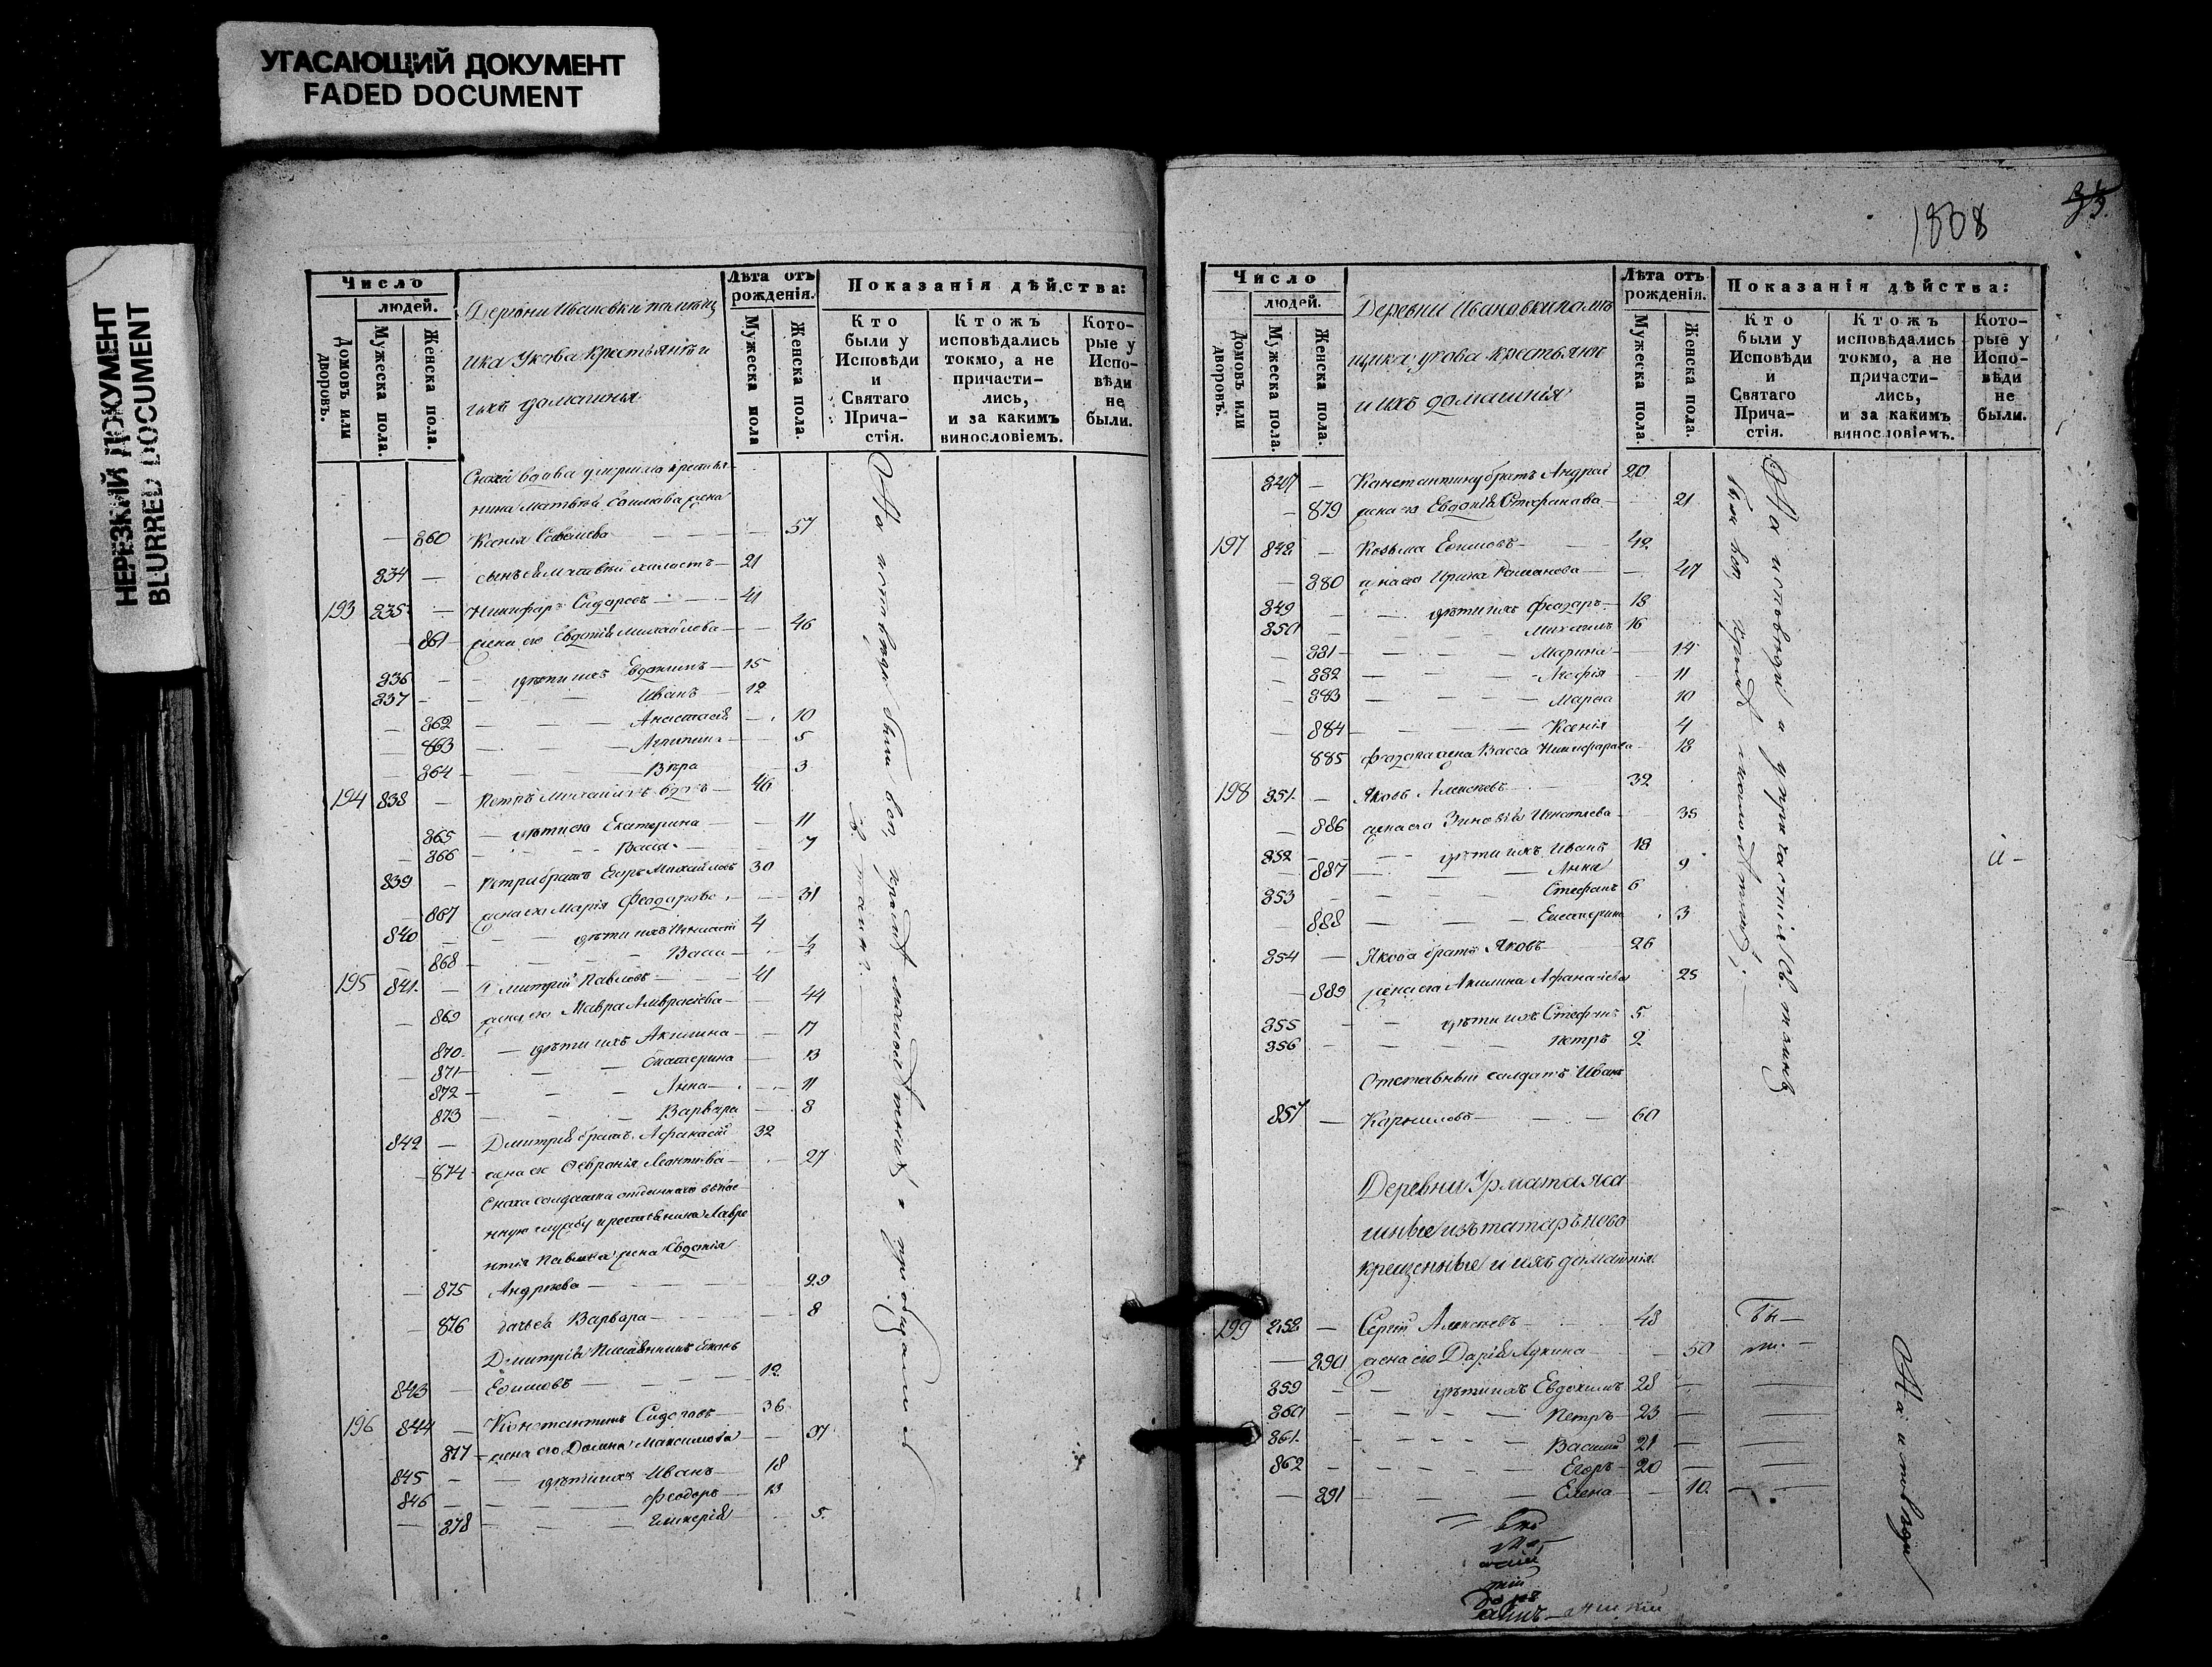 УГАСАЮЩИЙ ДОКУМЕНТ
FADED DOCUMENT
НЕРЕЗКИЙ ДОКУМЕНТ
BLURRED DOCUMENT
Число
людей.
Домовъ или дворовъ.
Мужеска пола.
Женска пола.
Деревни Ивановки помѣщ
ика Укова крестьянѣ и
ихъ домашнія
Лѣта отъ рожденія.
Мужеска пола
Женска пола.
Показанія дѣйства:
Кто были у Исповѣди и Святаго Прича-стія.
Ктожъ исповѣдались токмо, а не причасти-лись, и за какимъ винословіемъ.
Кото-рые у Испо-вѣди не были.
Сноха вдова умершаго крестья
нина Матвѣя жена
860 Ксенія 57
834 — сынъ ея Матвѣй холостъ — 21
193 835 — Никифоръ Сидоровъ — 41
861 — жена его Евдокія Михайлова — 46
836 — дѣти ихъ Евдокимъ — 15
837 — Иванъ — 12
862 — Анастасія — 10
863 — — 5
864 — Вѣра 3
194 838 — Петръ Михайловъ вдовъ — 46
865 — дѣти его Екатерина — 11
866 — Васса — 7
839 — Петра братъ Егоръ Михайловъ 30
867 жена его Марія Феодорова — 31
840 — дѣти ихъ Игнатій 4
868 — Васса — 1/2
195 841 — Дмитрій Павловъ — 41
869 жена его Мавра — 44
870 — дѣти ихъ Акилина — 17
871 — Екатерина — 13
872 — Анна — 11
873 — Варвара — 8
842 — Дмитрія братъ Афанасій 32
874 — жена его Февронія Леонтьева — 27
Сноха солдатка отданнаго въ
ную службу крестьянина Лавре
нтія Павлова жена Евдокія
875 Андреева — 29
876 дочь ея Варвара — 8
Дмитрія
843 — Ефимовъ — 12
196 844 — Константинъ Сидоровъ — 36
877 — жена его Домна Максимова — 37
845 — дѣти ихъ Иванъ — 18
846 — Феодоръ — 13
878 — Гликерія — 5
1808
33.
Число
людей.
Домовъ или дворовъ.
Мужеска пола
Женска пола.
Деревни Ивановки помѣ
щика Укова крестьянѣ
и ихъ домашнія
Лѣта отъ рожденія.
Мужеска пола.
Женска пола.
Показанія дѣйства:
Кто были у Исповѣди и Святаго Прича-стія.
Ктожъ исповѣдались токмо, а не причасти-лись, и за какимъ винословіемъ.
Кото-рые у Испо-вѣди не были.
847 — Константину братъ Андрей 20
879 жена его Евдокія Стефанова — 21
197 848 — Козьма Ефимовъ — 42
880 жена его Ирина Романова — 47
849 — дѣти ихъ Феодоръ — 18
850 — Михаилъ 16
881 — Марина — 14
882 — Агафія — 11
883 — Марфа 10
884 — Ксенія 4
885 Феодора жена Васса Никифорова — 18
198 851 — Яковъ Алексеевъ — 32
886 жена его Зиновія Игнатьева — 35
852 — дѣти ихъ Иванъ 18
887 — Анна 9
853 — Стефанъ 6
888 — Екатерина 3
854 — Якова братъ Яковъ — 26
889 жена его Акилина Афанасіева 25
855 — дѣти ихъ Стефанъ 5
856 — Петръ 2
Отставный солдатъ Иванъ
857 — Корниловъ — 60
Деревни
изъ татаръ ново
крещенные и ихъ домашнія
199 858 — Сергій Алексеевъ — 48
890 жена его Дарія Лукина — 50
859 — дѣти ихъ Евдокимъ 28
860 — Петръ — 23
861 — Василій 21
862 — Егоръ — 20
891 — Елена — 10